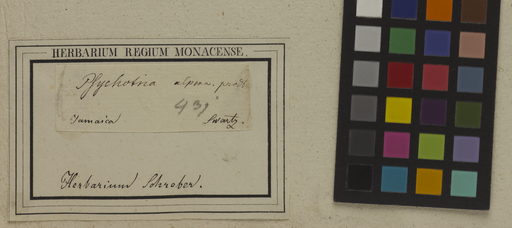 HERBARIUM REGIUM MONACENSE.
Psychotria
Jamaica Swartz.
Herbarium Schreber.